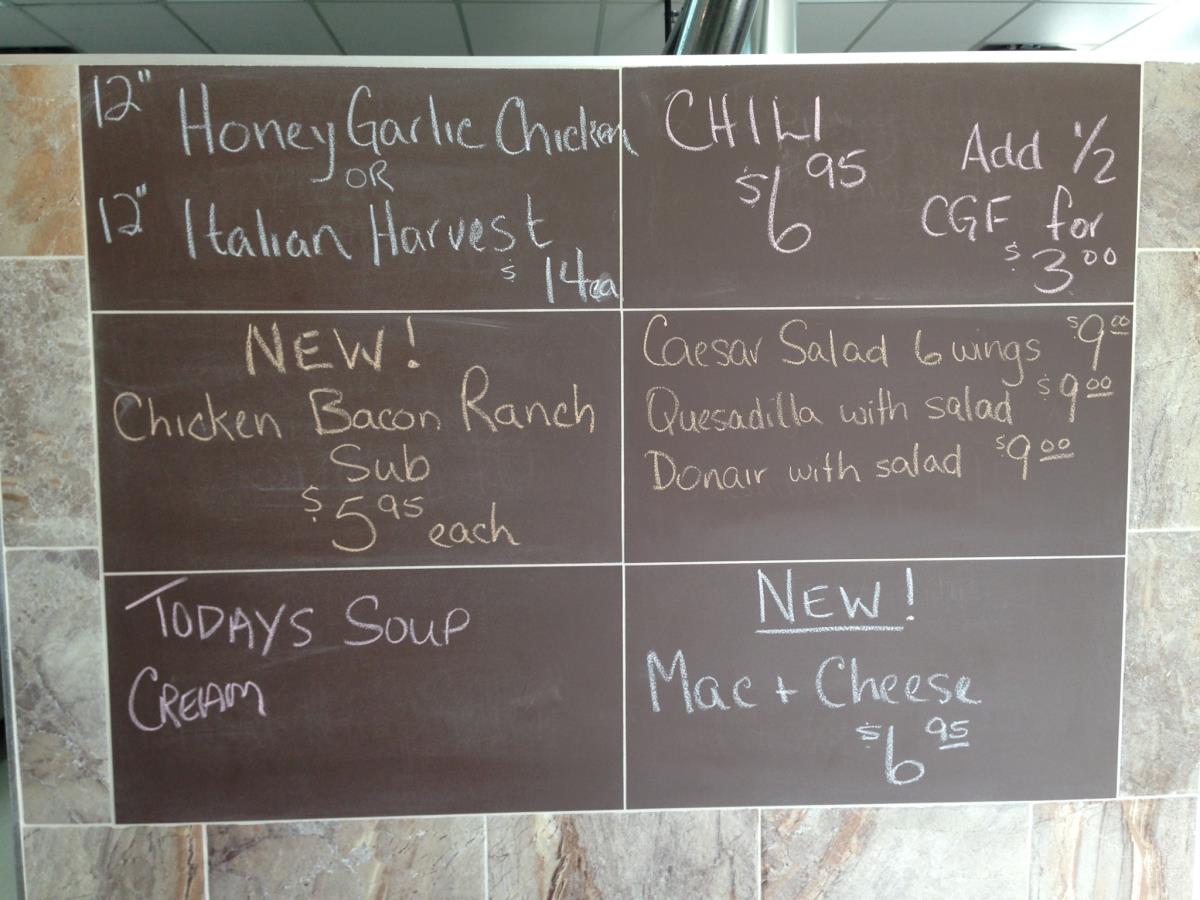 12" Honey Garlic Chicken
OR
12" Italian Harvest
$14ea
CHILI
$6 95
Add 1/2
CGF for
$3 00
NEW!
Chicken Bacon Ranch
Sub
$5 95 each
Caesar Salad 6 wings $9 00
Quesadilla with salad $9 00
Donair with salad $9 00
TODAYS SOUP
CREAM
NEW!
Mac + Cheese
$6 95